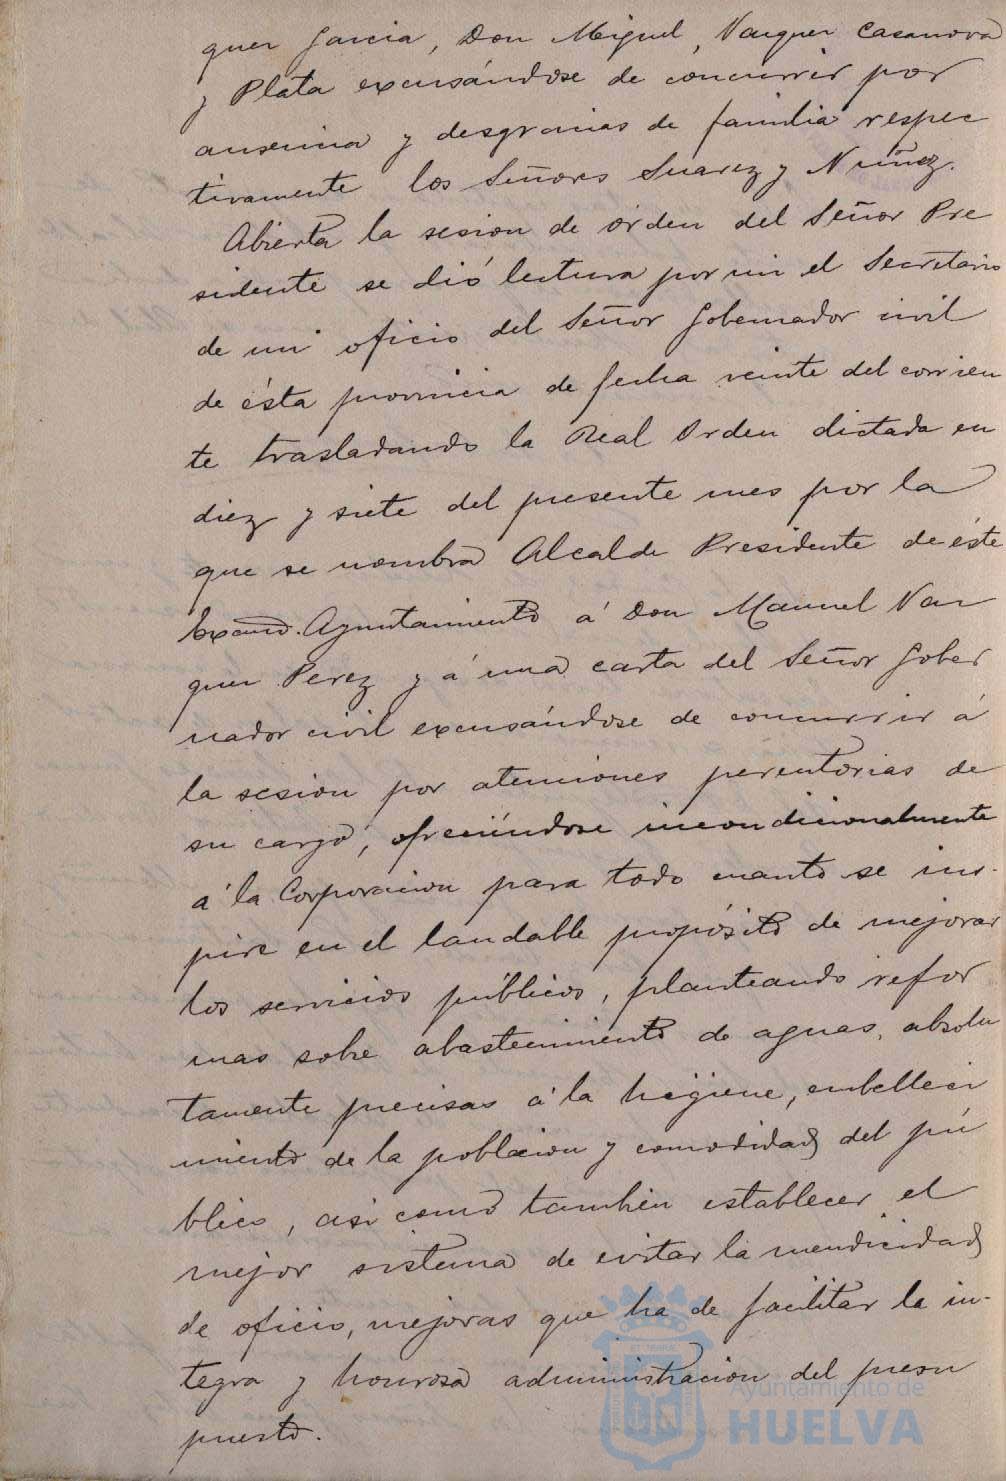 quer Garcia, Don Miguel, Vazquer Casanova
y Plata excusándose de concurrir por
ausencia y desgracias de familia respec
tivamente los Señores Suarez y Nuñez.
Abierta la sesion de órden del Señor Pre
sidente se dió lectura por mi el Secretario
de un oficio del Señor Gobernador civil
de ésta provincia de fecha veinte del corrien
te trasladando la Real Orden dictada en
diez y siete del presente mes por la
que se nombra Alcalde Presidente de éste
Excmo. Ayuntamiento á Don Manuel Vaz
quer Perez y á una carta del Señor Gober
nador civil excusándose de concurrir á
la sesion por atenciones perentorias de
su cargo, ofreciéndose incondicionalmente
á la Corporacion para todo cuanto se ins-
pire en el laudable propósito de mejorar
los servicios públicos, planteando refor
mas sobre abastecimiento de aguas, absolu
tamente precisas á la higiene, embelleci
miento de la poblacion y comodidad del pú
blico, asi como tambien establecer el
mejor sistema de evitar la mendicidad
de oficio, mejoras que ha de facilitar la in-
tegra y honrosa administracion del presu
puesto.
Ayuntamiento de
HUELVA